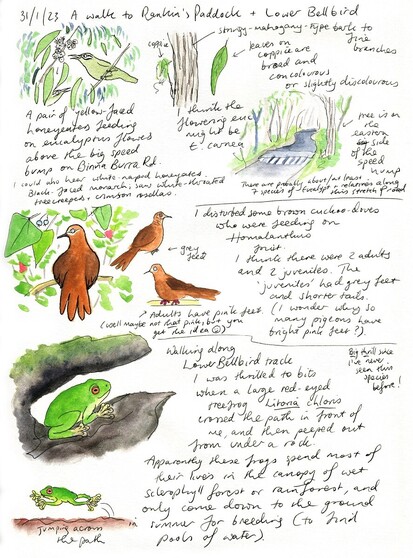 31/1/23 A walk to Rankin's Paddock + Lower Bellbird
stringy-mahogany-type bark to
fine
branches
coppice
leaves on
coppice are
broad and
concolourous
or slightly discolourous
A pair of yellow-faced
honeyeaters feeding
on eucalyptus flowers
above the big speed
bump on Binna Burra Rd.
I could also hear white-naped honeyeaters,
Black-faced monarch; saw white-throated
treecreepers, crimson rosellas.
I think the
flowering euc
might be
E. carnea
tree is on
the
eastern
side of
the speed
hump
There are probably (at least)
7 species of Eucalypt + relatives along
this stretch of road
I disturbed some brown cuckoo-doves
who were feeding on
Homalanthus
fruit.
I think there were 2 adults
and 2 juveniles. The
'juveniles' had grey feet
and shorter tails.
(I wonder why so
many pigeons have
bright pink feet?).
grey
feet
Adults have pink feet.
(well maybe not that pink, but you
get the idea ☺)
Walking along
Lower Bellbird track
I was thrilled to bits
when a large red-eyed
treefrog Litoria chloris
crossed the path in front of
me, and then peeped out
from under a rock.
Big thrill since
I've never
seen this
species before!
Apparently these frogs spend most of
their lives in the canopy of wet
sclerophyll forest or rainforest, and
only come down to the ground
in summer for breeding (to find
pools of water).
jumping across
the path